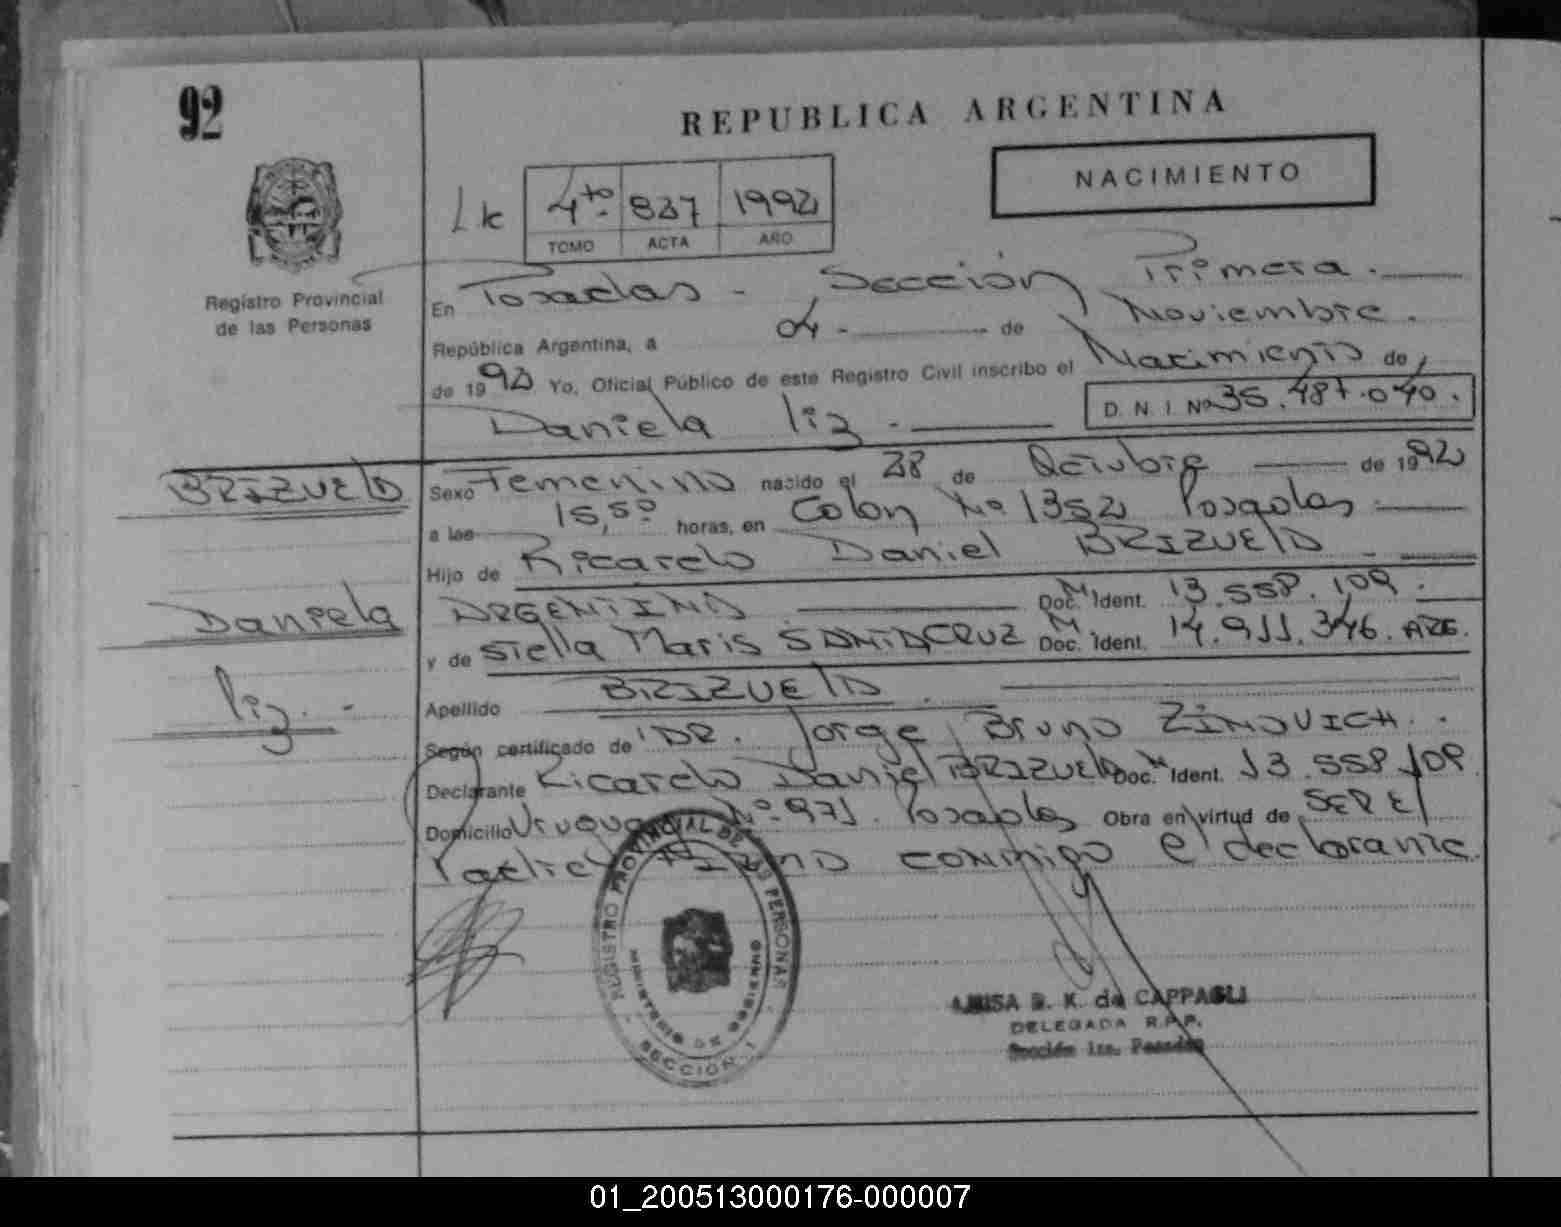 92
REPUBLICA ARGENTINA
NACIMIENTO
4to 837 1992
TOMO ACTA AÑO
Registro Provincial
de las Personas
En Posadas - Sección Primera.
República Argentina, a 04 - de Noviembre.
de 1992 Yo, Oficial Público de este Registro Civil inscribo el Nacimiento de
Daniela Liz - D. N. I. Nº 35.487.040.
BRIZUELA
Sexo Femenino nacido el 28 de Octubre de 1992
a las 15,50 horas, en Colon Nº 1352 Posadas
Hijo de Ricardo Daniel BRIZUELA
Daniela
ARGENTINO Doc. M Ident. 13.558.109.
y de Stella Maris SANTACRUZ Doc. M Ident. 14.911.346. ARG.
Liz. -
Apellido BRIZUELA.
Según certificado de DR. Jorge Bruno ZINOVICH.
Declarante Ricardo Daniel BRIZUELA Doc. M Ident. 13.558.109
Domicilio Uruguay Nº 971. Posadas Obra en virtud de SER El
Padre conmigo el declarante.
REGISTRO PROVINCIAL DE LAS PERSONAS
MINISTERIO DE GOBIERNO
SECCION 1
R. K. de CAPPAGLI
DELEGADA R.P.P.
Sección 1ra. Posadas
01_200513000176-000007